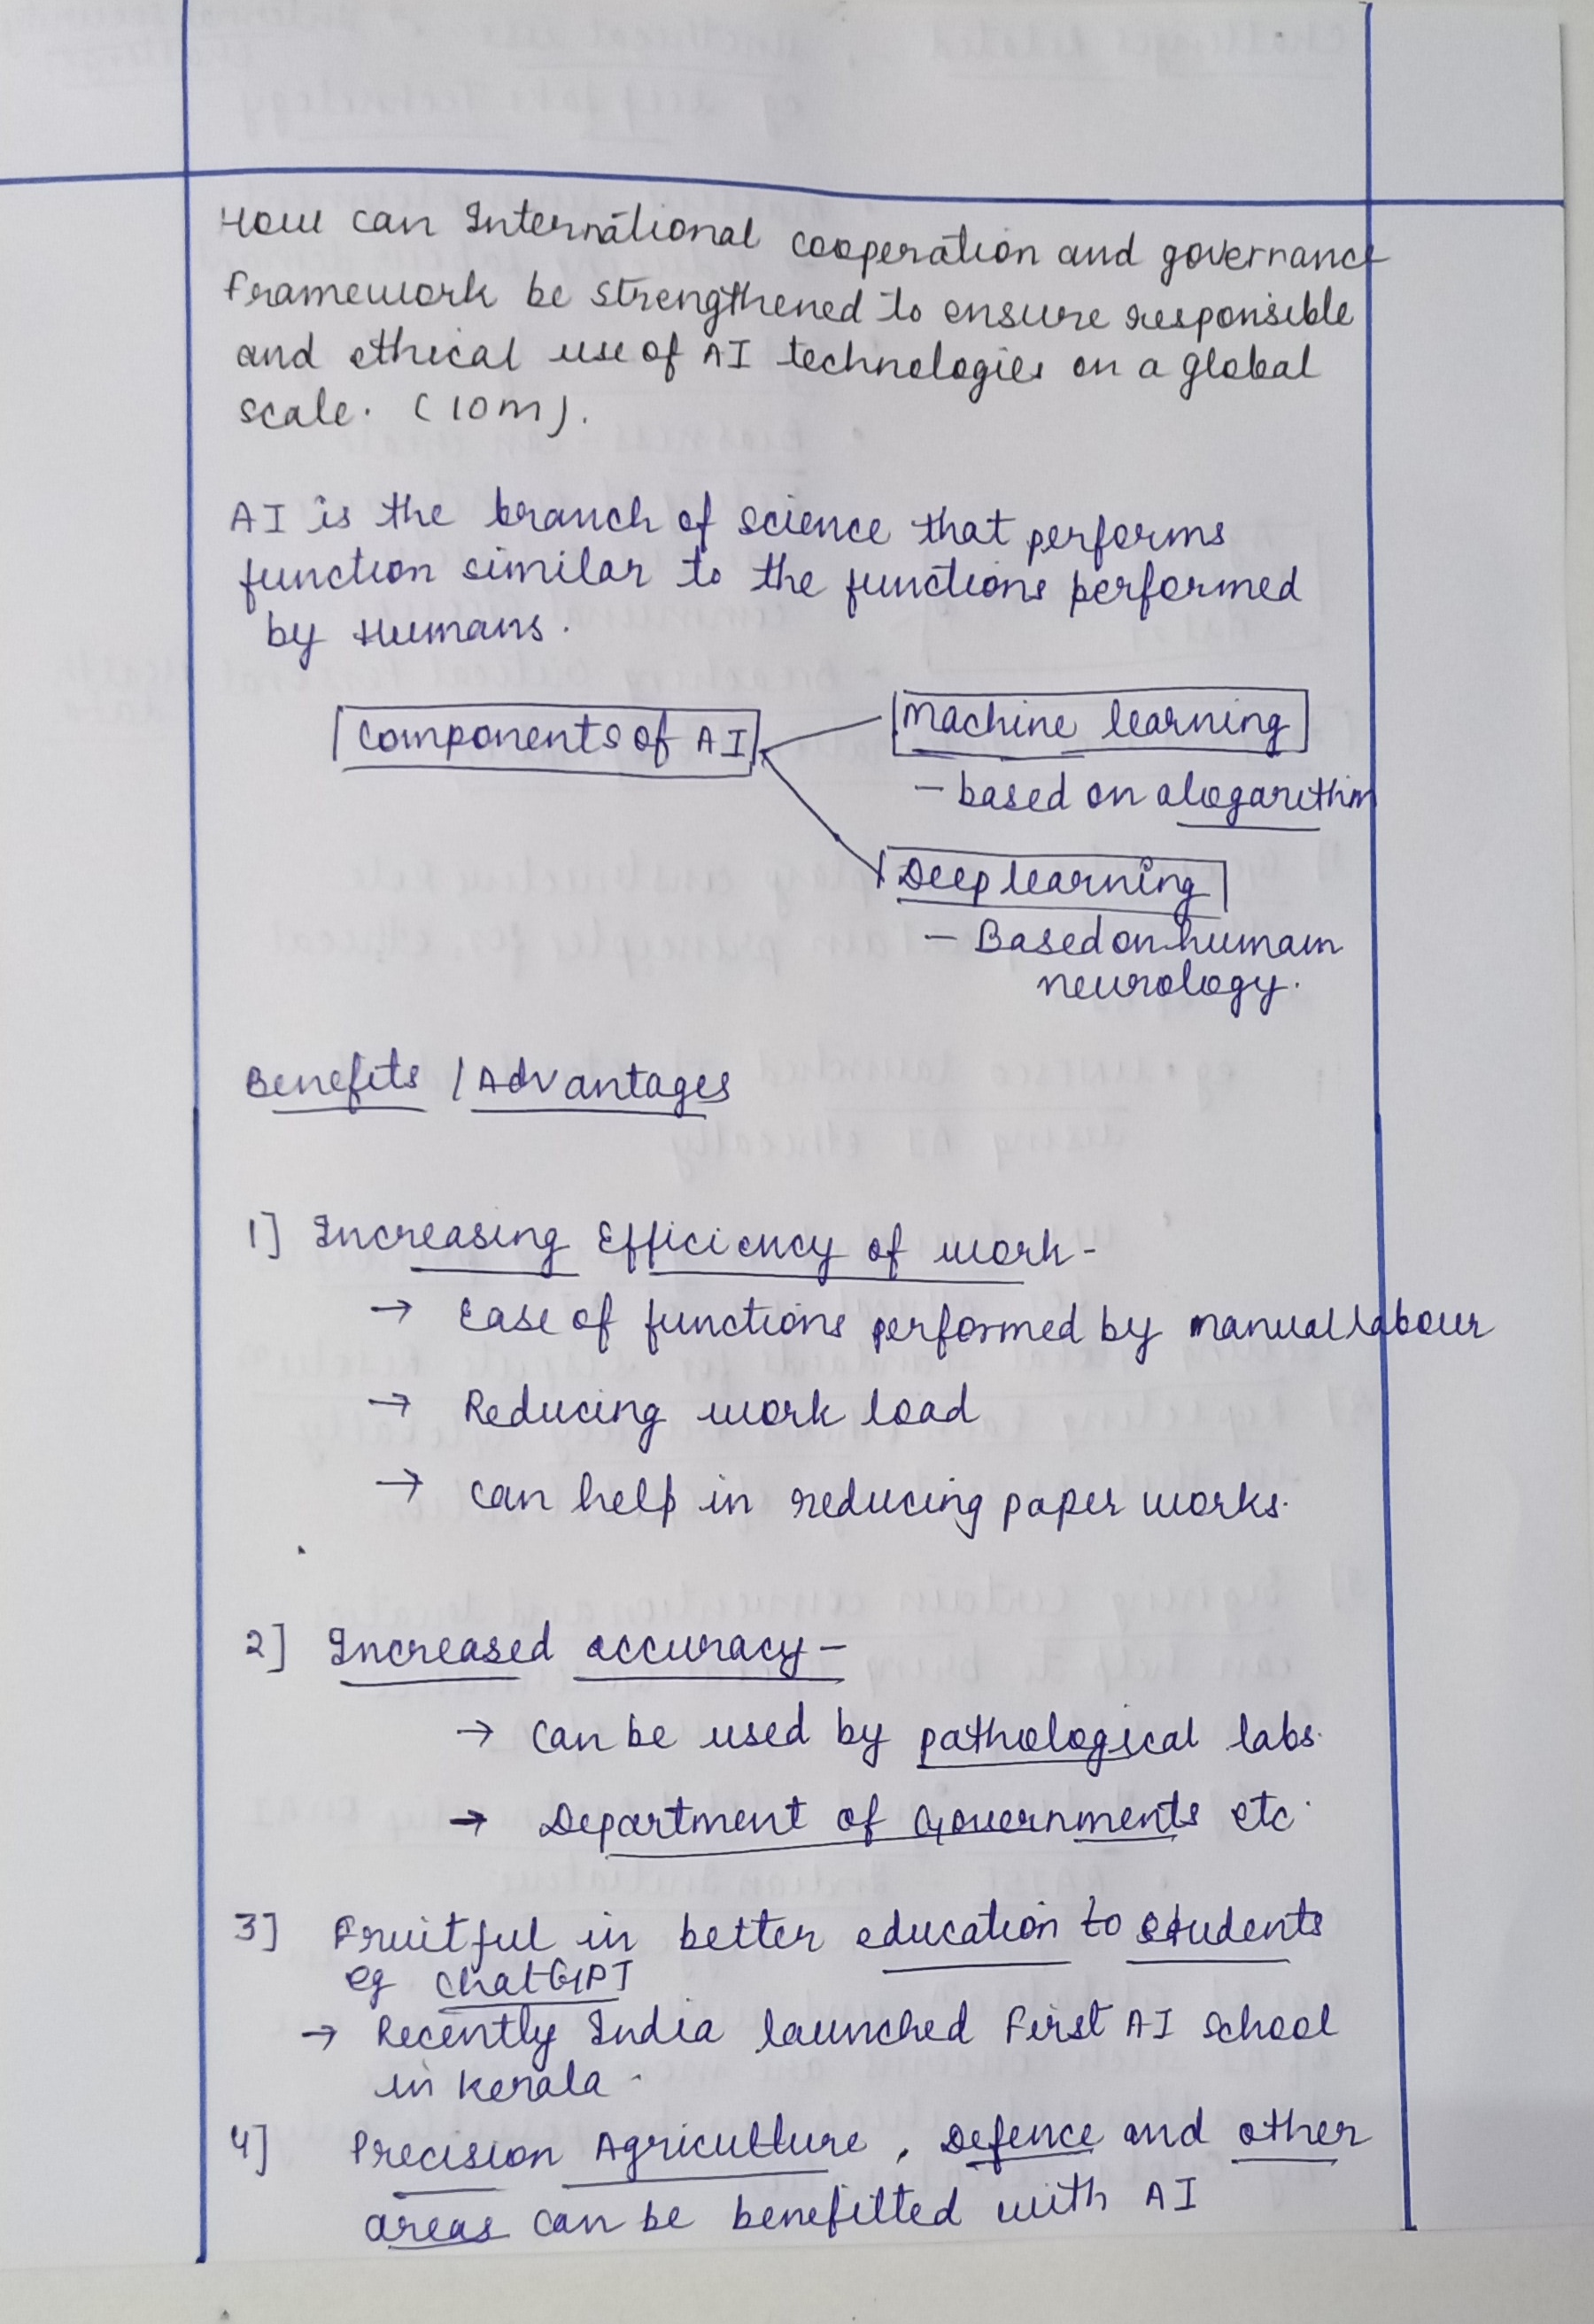 How can International cooperation and governance
framework be strengthened to ensure responsible
and ethical use of AI technologies on a global
scale. (10m).
AI is the branch of science that performs
function similar to the functions performed
by Humans.
Components of AI
Machine learning
- based on alogarithm
Deep learning
- Based on humam
neurology.
Benefits / Advantages
1] Increasing Efficiency of work -
→ Ease of functions performed by manual labour
→ Reducing work load
→ can help in reducing paper works.
2] Increased accuracy -
→ can be used by pathological labs.
→ Department of Governments etc.
3] Fruitful in better education to students
eg ChatGPT
→ Recently India launched First AI school
in Kerala.
4] Precision Agriculture, Defence and other
areas can be benefitted with AI